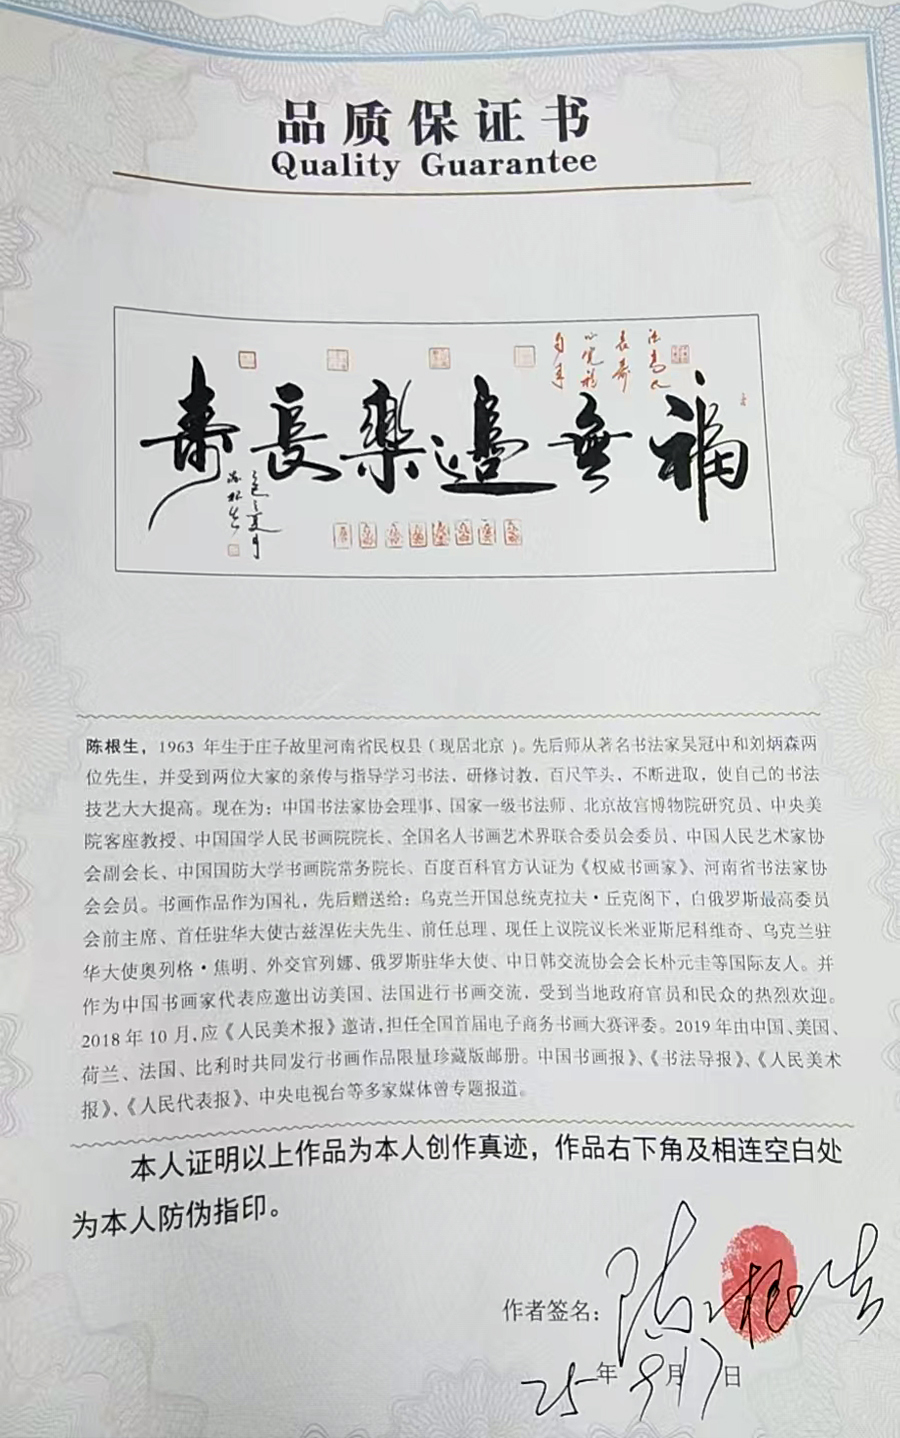 品质保证书
Quality Guarantee
福無邊樂長壽
陈根生，1963 年生于庄子故里河南省民权县（现居北京）。先后师从著名书法家吴冠中和刘炳森两
位先生，并受到两位大家的亲传与指导学习书法，研修讨教，百尺竿头，不断进取，使自己的书法
技艺大大提高。现在为：中国书法家协会理事、国家一级书法师、北京故宫博物院研究员、中央美
院客座教授、中国国学人民书画院院长、全国名人书画艺术界联合委员会委员、中国人民艺术家协
会副会长、中国国防大学书画院常务院长、百度百科官方认证为《权威书画家》、河南省书法家协
会会员。书画作品作为国礼，先后赠送给：乌克兰开国总统克拉夫·丘克阁下，白俄罗斯最高委员
会前主席、首任驻华大使古兹涅佐夫先生、前任总理、现任上议院议长米亚斯尼科维奇、乌克兰驻
华大使奥列格·焦明、外交官列娜、俄罗斯驻华大使、中日韩交流协会会长朴元圭等国际友人。并
作为中国书画家代表应邀出访美国、法国进行书画交流，受到当地政府官员和民众的热烈欢迎。
2018 年 10 月，应《人民美术报》邀请，担任全国首届电子商务书画大赛评委。2019 年由中国、美国、
荷兰、法国、比利时共同发行书画作品限量珍藏版邮册。中国书画报》、《书法导报》、《人民美术
报》、《人民代表报》、中央电视台等多家媒体曾专题报道。
本人证明以上作品为本人创作真迹，作品右下角及相连空白处
为本人防伪指印。
作者签名：陈根生
25 年 9 月 17 日